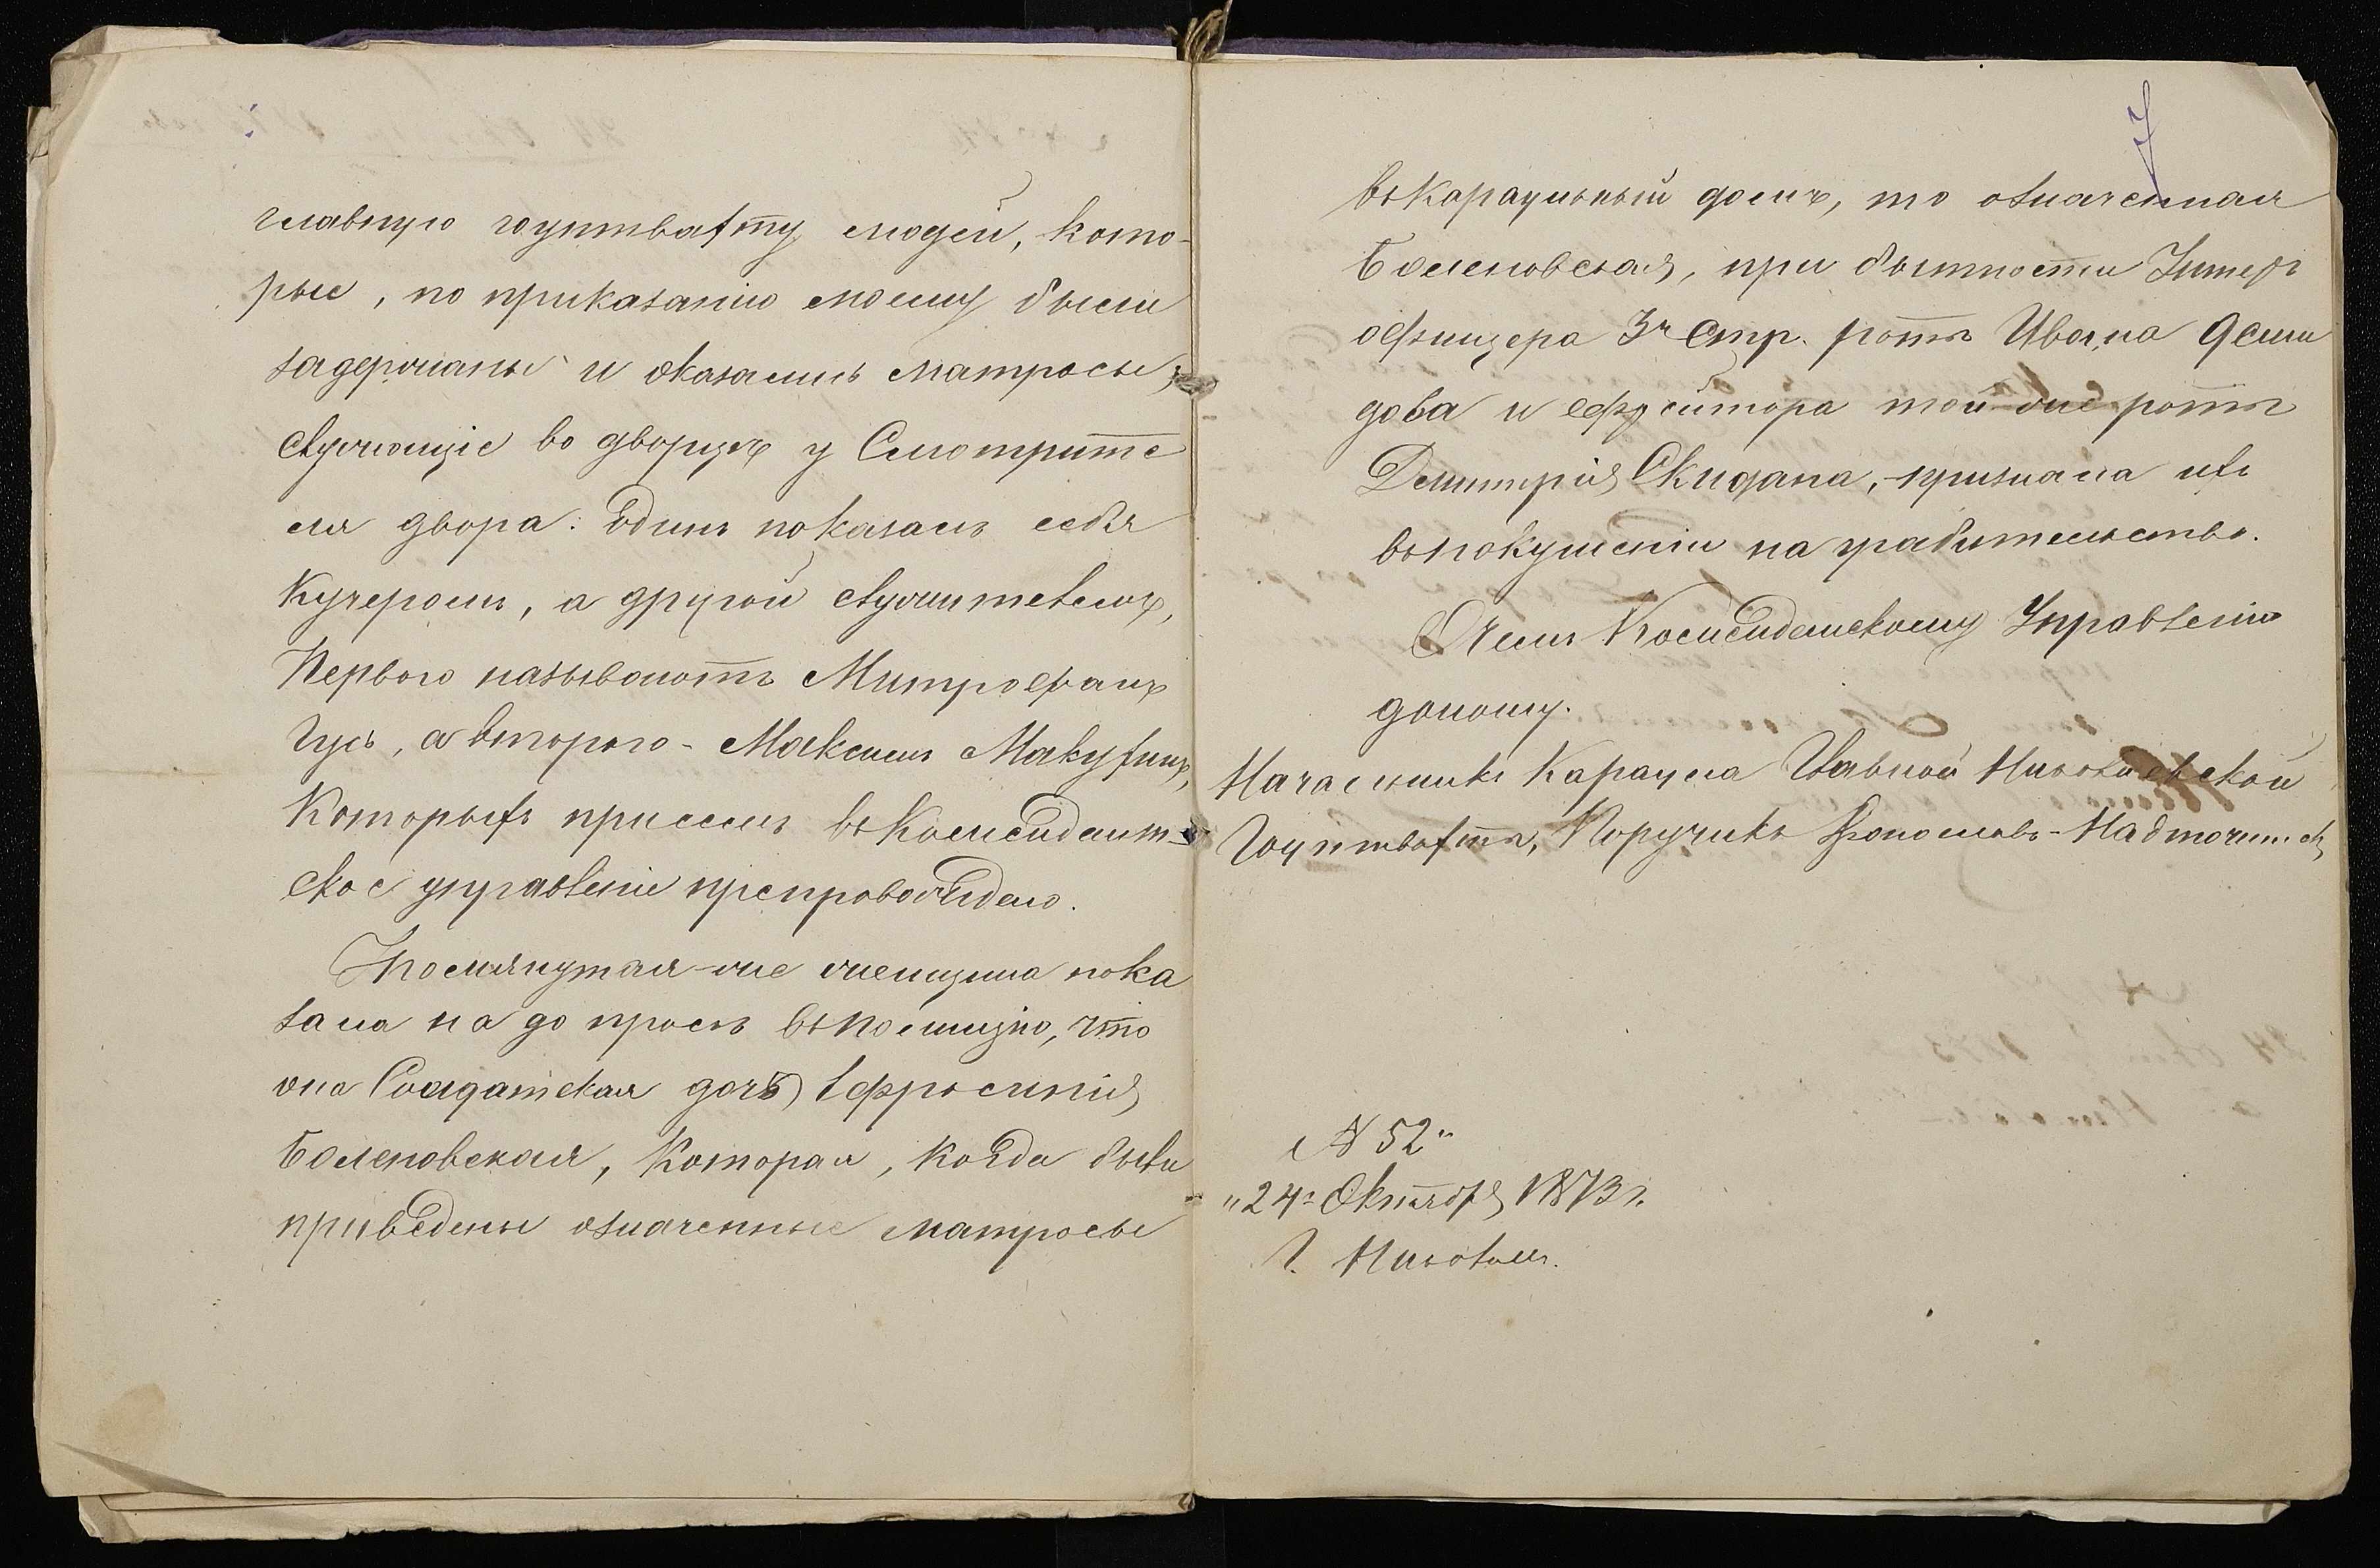 главную гоуптвахту людей, кото-
рые, по приказанію моему были
задержаны и оказались матросы,
служащіе во дворцѣ у Смотрите
ля двора: Одинъ показалъ себя
Кучеромъ, а другой служителемъ,
Перваго называютъ Митрофанъ
Гусь, а второго - Максимъ Макухинъ,
Которыхъ при семъ въ Комендант-
ское управленіе препровождаю.
Упомянутая-же женщина пока
зала на до просѣ въ полицію, что
она Солдатская дочь Ефросинія
Боленовская, Которая, когда были
приведены означенные матросы
7
въ Караульный домъ, то означенная
Боленовская, при бытности Унтеръ
офицера 3й Стр. роты Ивана Деми
дова и ефрейтора той-же роты
Демитрія Скидана, признала ихъ
въ покушеніи на грабительство.
О чемъ Комендантскому Управленію
доношу.
Начальникъ Караула Главной Николаевской
Гоуптвахты, Поручикъ
№ 52"
"24" Октября 1873 г.
Г. Николаевъ.